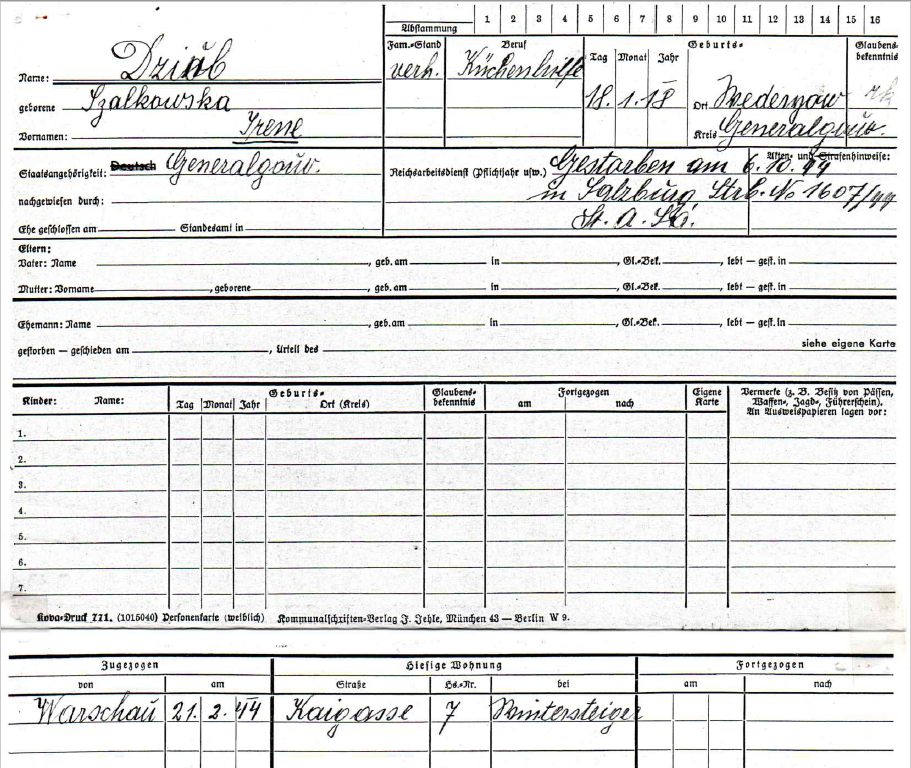 Abstammung 1 2 3 4 5 6 7 8 9 10 11 12 13 14 15 16
Name: Dziub
geborene Szalkowska
Vornamen: Irene
Fam.-Stand Beruf Geburts- Glaubens-bekenntnis
Tag Monat Jahr
verh. Küchenhilfe
18. 1. 18 Ort
rk
Kreis Generalgouv.
Staatsangehörigkeit: Deutsch Generalgouv.
nachgewiesen durch:
Ehe geschlossen am Standesamt in
Akten- und Strafenhinweise:
Reichsarbeitsdienst (Pflichtjahr usw.) Gestorben am 6.10.44
in Salzburg, Strb. No 1607/44
St. A. Sbg.
Eltern:
Vater: Name , geb. am in , Gl.-Bek. , lebt — gest. in
Mutter: Vorname , geborene , geb. am in , Gl.-Bek. , lebt — gest. in
Ehemann: Name , geb. am in , Gl.-Bek. , lebt — gest. in
siehe eigene Karte
gestorben — geschieden am , Urteil des
Kinder: Name: Geburts- Glaubens-bekenntnis Fortgezogen Eigene Karte Vermerke (z. B. Besitz von Pässen,
Waffen-, Jagd-, Führerschein).
Tag Monat Jahr Ort (Kreis) am nach An Ausweispapieren lagen vor:
1.
2.
3.
4.
5.
6.
7.
Kova-Druck 771. (1015040) Personenkarte (weiblich) Kommunalschriften-Verlag J. Jehle, München 43 — Berlin W 9.
Zugezogen Hiesige Wohnung Fortgezogen
von am Straße Hs.-Nr. bei am nach
Warschau 21. 2. 44 Kaigasse 7 Wintersteiger